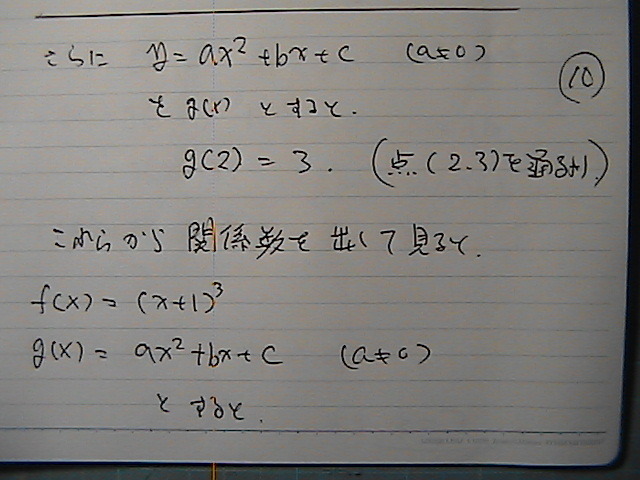 さらに y=ax²+bx+c (a≠0)
⑩
を g(x) とすると.
g(2) = 3. (点(2.3)を通るから)
これらから 関係数を 出して見ると.
f(x) = (x+1)³
g(x) = ax²+bx+c (a≠0)
とすると.